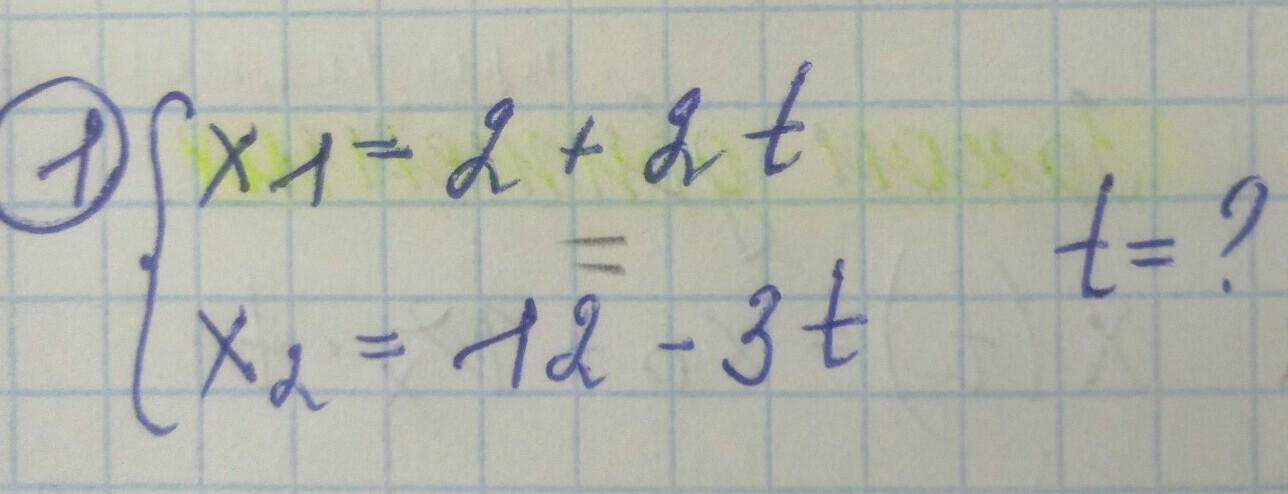 1 x1 = 2 + 2t
=
t = ?
x2 = 12 - 3t